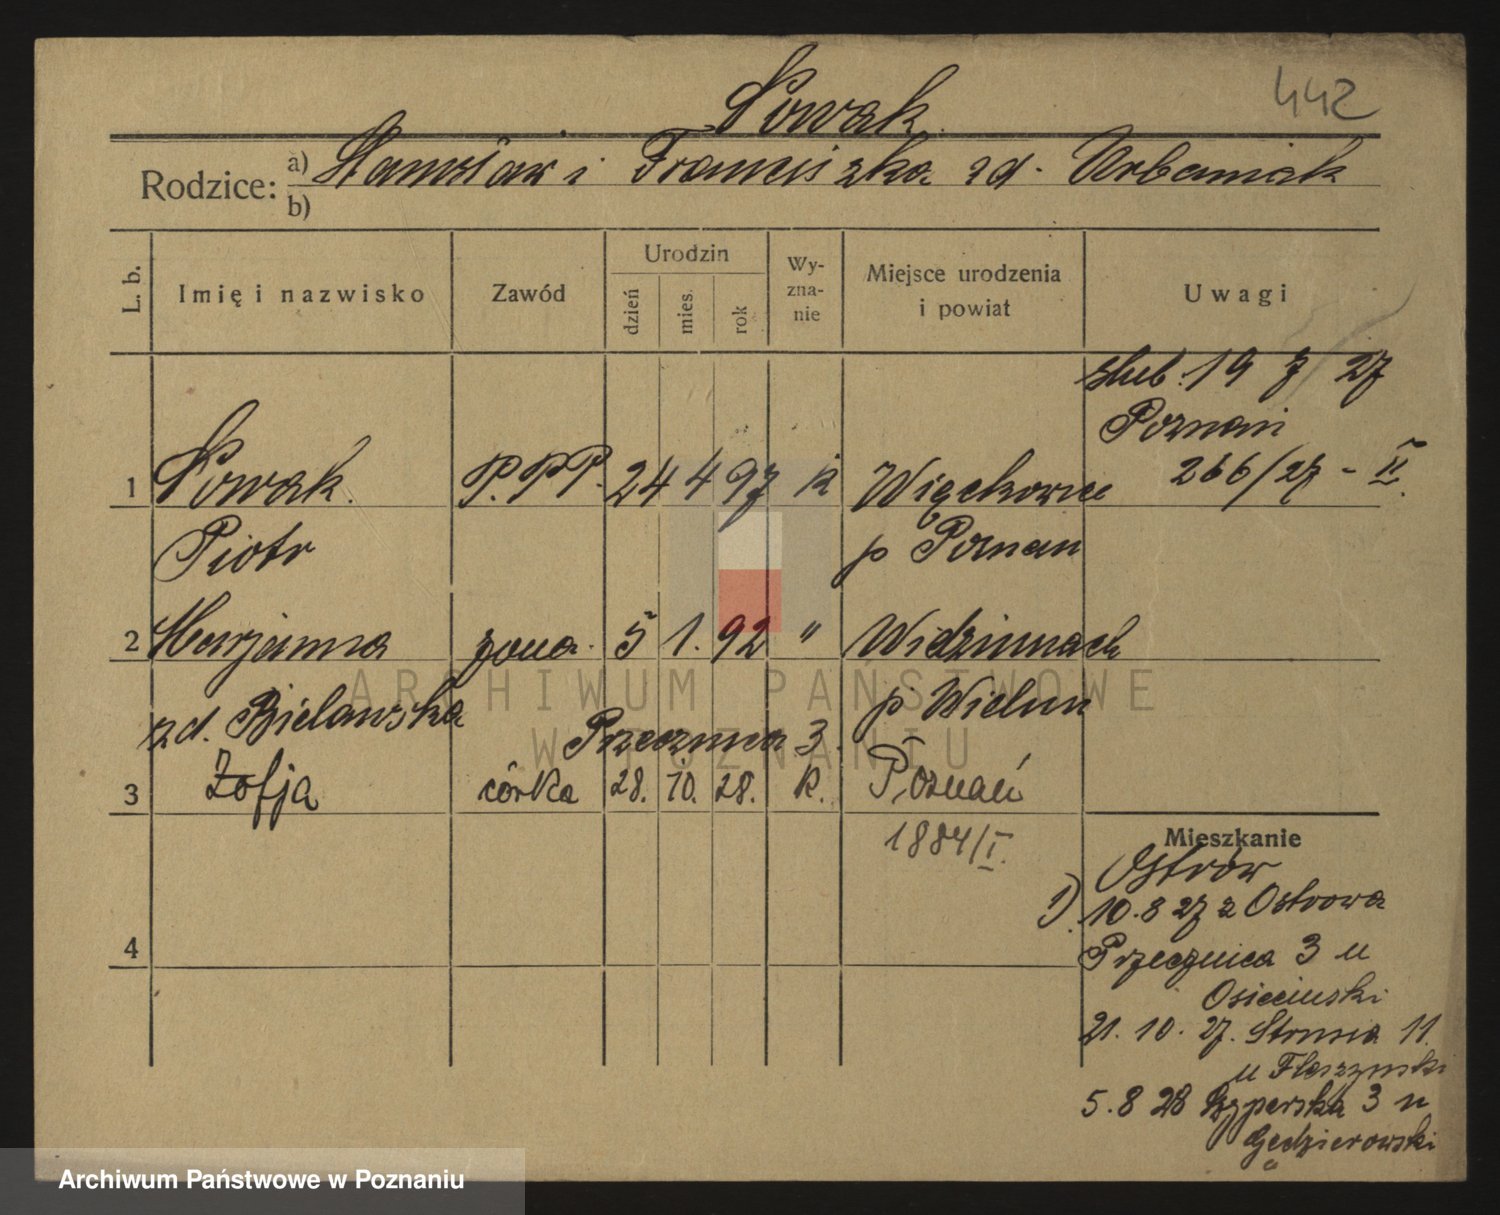 442
Nowak
Rodzice: a) Stanisław i Franciszka zd. Urbaniak
b)
L. b.
Imię i nazwisko
Zawód
Urodzin
dzień
mies.
rok
Wy-
zna-
nie
Miejsce urodzenia
i powiat
Uwagi
ślub. 19 7 27
Poznań
266/27 - II.
1 Nowak P.P.P. 24 4 97 k Więckowice
Piotr p Poznan
2 Marjanna żona 5 1. 92 " Widzinnach
zd. Bielawska p. Wielun
Przecznica 3.
3 Zofja córka 28. 10. 28. k. Poznań
1884/I.
Mieszkanie
Ostrów
1) 10.8 27 z Ostrowa
4
Przecznica 3 u
Osiecinski
21. 10. 27. Strusia 11.
u
5.8 28 3 u
Gędzierowski
ARCHIWUM PAŃSTWOWE
W POZNANIU
Archiwum Państwowe w Poznaniu